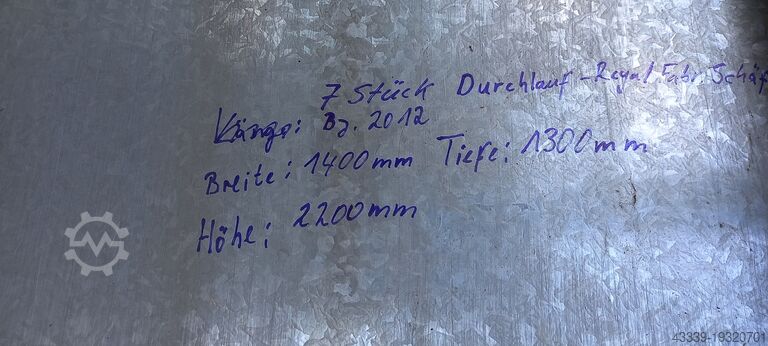 7 Stück Durchlauf-Regal Fabr. Schäf
Länge: Bj. 2012
Breite: 1400mm Tiefe: 1300mm
Höhe: 2200mm
43339-19320701